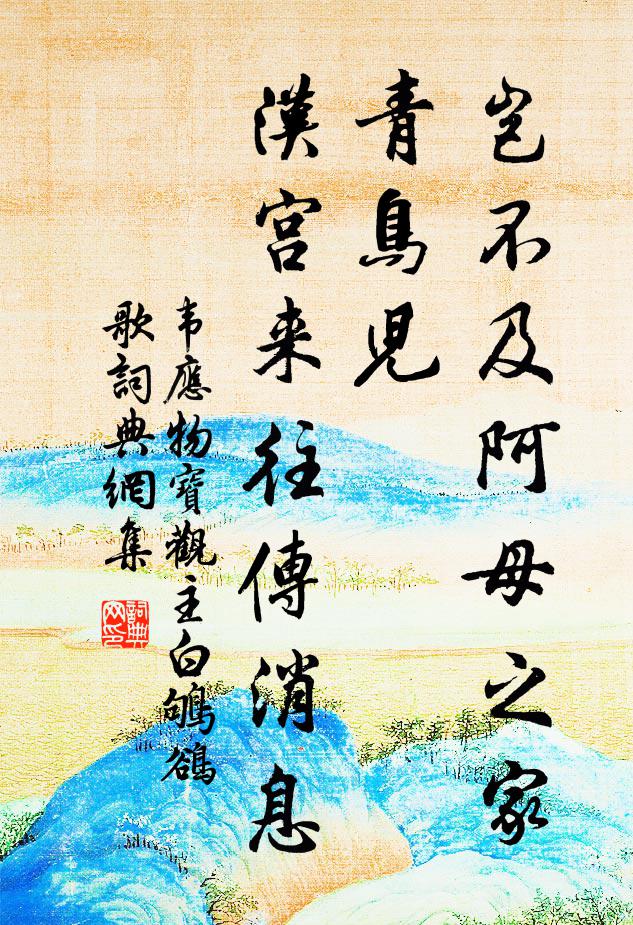 豈不及阿母之家
青鳥児
漢宮来往傳消息
韦應物寶觀主白鴝鵒
歌詞典網集
詞典
网印